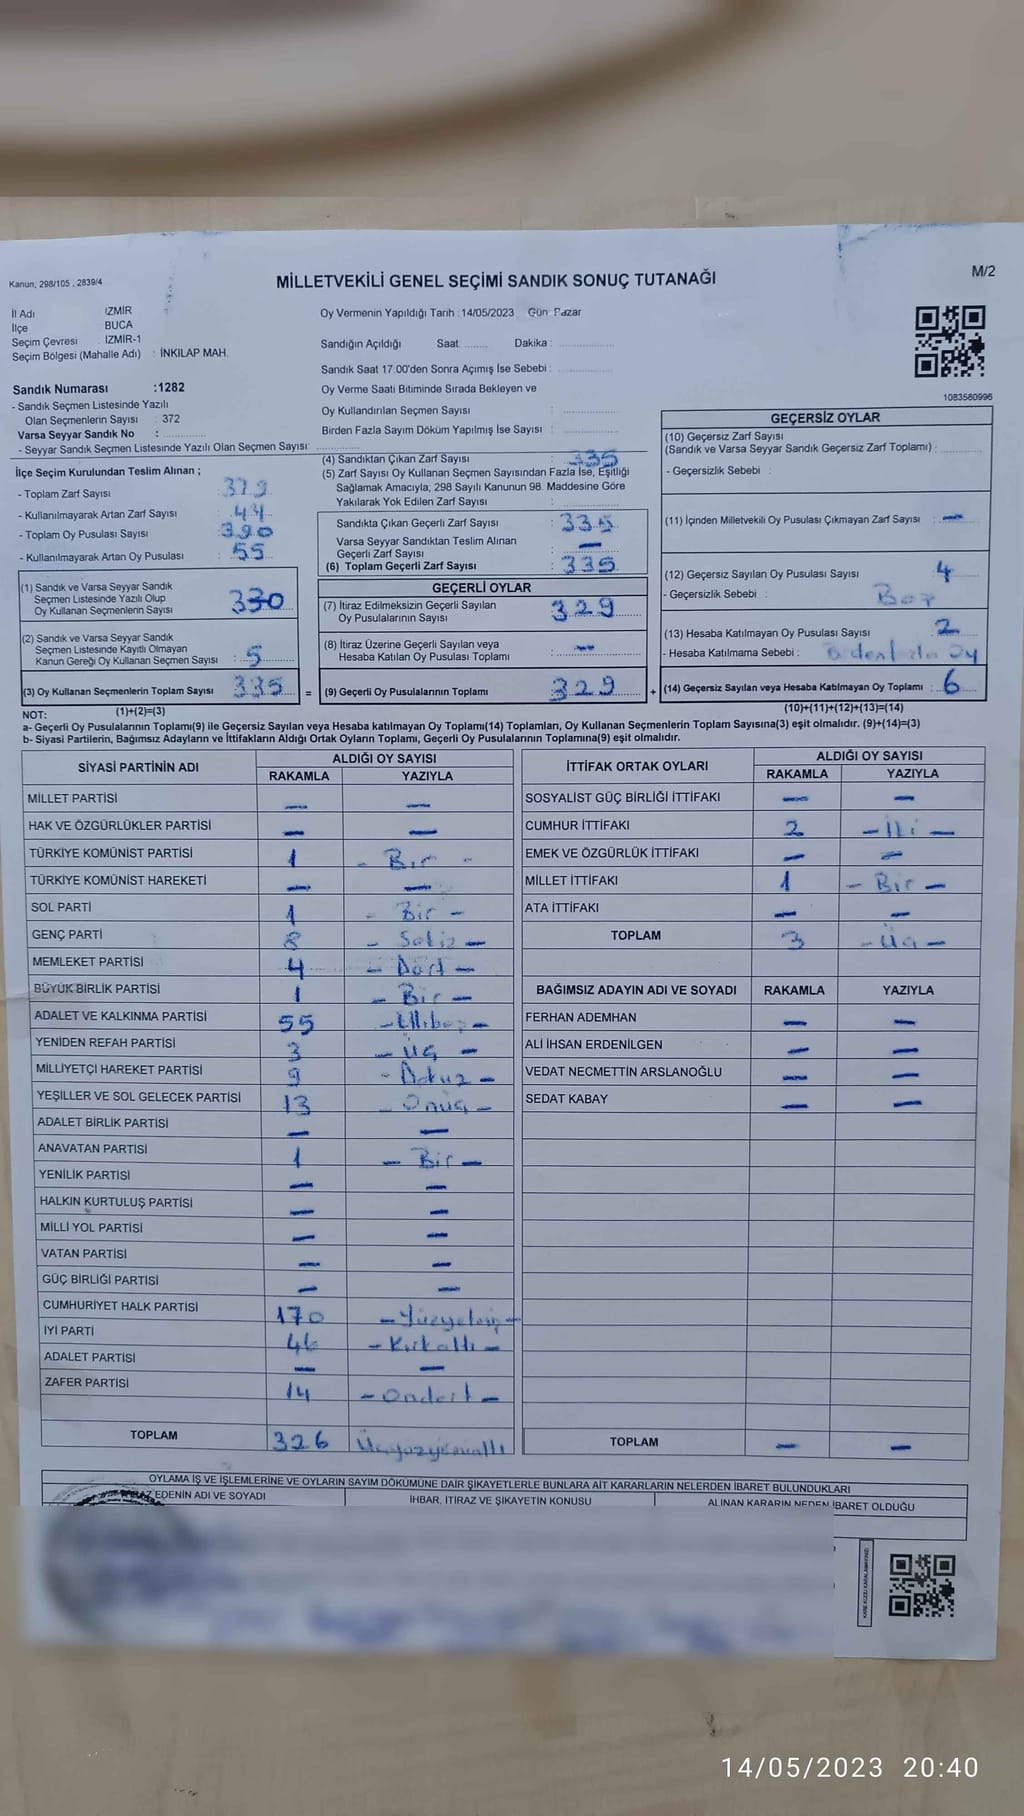 Kanun, 298/105 , 2839/4
MİLLETVEKİLİ GENEL SEÇİMİ SANDIK SONUÇ TUTANAĞI
M/2
İl Adı İZMİR
İlçe BUCA
Seçim Çevresi : İZMİR-1
Seçim Bölgesi (Mahalle Adı) : İNKILAP MAH.
Sandık Numarası :1282
- Sandık Seçmen Listesinde Yazılı
Olan Seçmenlerin Sayısı : 372
Varsa Seyyar Sandık No :
- Seyyar Sandık Seçmen Listesinde Yazılı Olan Seçmen Sayısı:
Oy Vermenin Yapıldığı Tarih : 14/05/2023 Gün: Pazar
Sandığın Açıldığı Saat: Dakika :
Sandık Saat 17.00'den Sonra Açımış İse Sebebi :
Oy Verme Saati Bitiminde Sırada Bekleyen ve
Oy Kullandırılan Seçmen Sayısı :
Birden Fazla Sayım Döküm Yapılmış İse Sayısı :
1083580996
İlçe Seçim Kurulundan Teslim Alınan ;
- Toplam Zarf Sayısı : 379
- Kullanılmayarak Artan Zarf Sayısı : 44
- Toplam Oy Pusulası Sayısı : 390
- Kullanılmayarak Artan Oy Pusulası : 55
(1) Sandık ve Varsa Seyyar Sandık
Seçmen Listesinde Yazılı Olup
Oy Kullanan Seçmenlerin Sayısı : 330
(2) Sandık ve Varsa Seyyar Sandık
Seçmen Listesinde Kayıtlı Olmayan
Kanun Gereği Oy Kullanan Seçmen Sayısı : 5
(3) Oy Kullanan Seçmenlerin Toplam Sayısı : 335 =
(1)+(2)=(3)
(4) Sandıktan Çıkan Zarf Sayısı : 335
(5) Zarf Sayısı Oy Kullanan Seçmen Sayısından Fazla İse, Eşitliği
Sağlamak Amacıyla, 298 Sayılı Kanunun 98. Maddesine Göre
Yakılarak Yok Edilen Zarf Sayısı :
Sandıkta Çıkan Geçerli Zarf Sayısı : 335
Varsa Seyyar Sandıktan Teslim Alınan
Geçerli Zarf Sayısı : —
(6) Toplam Geçerli Zarf Sayısı : 335
GEÇERLİ OYLAR
(7) İtiraz Edilmeksizin Geçerli Sayılan
Oy Pusulalarının Sayısı : 329
(8) İtiraz Üzerine Geçerli Sayılan veya
Hesaba Katılan Oy Pusulası Toplamı : —
(9) Geçerli Oy Pusulalarının Toplamı : 329 +
GEÇERSİZ OYLAR
(10) Geçersiz Zarf Sayısı
(Sandık ve Varsa Seyyar Sandık Geçersiz Zarf Toplamı) :
- Geçersizlik Sebebi :
(11) İçinden Milletvekili Oy Pusulası Çıkmayan Zarf Sayısı : —
(12) Geçersiz Sayılan Oy Pusulası Sayısı : 4
- Geçersizlik Sebebi : Boş
(13) Hesaba Katılmayan Oy Pusulası Sayısı : 2
- Hesaba Katılmama Sebebi : Birden fazla Oy
(14) Geçersiz Sayılan veya Hesaba Katılmayan Oy Toplamı : 6
(10)+(11)+(12)+(13)=(14)
NOT:
a- Geçerli Oy Pusulalarının Toplamı(9) ile Geçersiz Sayılan veya Hesaba katılmayan Oy Toplamı(14) Toplamları, Oy Kullanan Seçmenlerin Toplam Sayısına(3) eşit olmalıdır. (9)+(14)=(3)
b- Siyasi Partilerin, Bağımsız Adayların ve İttifakların Aldığı Ortak Oyların Toplamı, Geçerli Oy Pusulalarının Toplamına(9) eşit olmalıdır.
SİYASİ PARTİNİN ADI ALDIĞI OY SAYISI
RAKAMLA YAZIYLA
MİLLET PARTİSİ — —
HAK VE ÖZGÜRLÜKLER PARTİSİ — —
TÜRKİYE KOMÜNİST PARTİSİ 1 - Bir -
TÜRKİYE KOMÜNİST HAREKETİ — —
SOL PARTİ 1 - Bir -
GENÇ PARTİ 8 - Sekiz -
MEMLEKET PARTİSİ 4 - Dört -
BÜYÜK BİRLİK PARTİSİ 1 - Bir -
ADALET VE KALKINMA PARTİSİ 55 - Ellibeş -
YENİDEN REFAH PARTİSİ 3 - Üç -
MİLLİYETÇİ HAREKET PARTİSİ 9 - Dokuz -
YEŞİLLER VE SOL GELECEK PARTİSİ 13 - Onüç -
ADALET BİRLİK PARTİSİ — —
ANAVATAN PARTİSİ 1 - Bir -
YENİLİK PARTİSİ — —
HALKIN KURTULUŞ PARTİSİ — —
MİLLİ YOL PARTİSİ — —
VATAN PARTİSİ — —
GÜÇ BİRLİĞİ PARTİSİ — —
CUMHURİYET HALK PARTİSİ 170 - Yüzyetmiş -
İYİ PARTİ 46 - Kırkaltı -
ADALET PARTİSİ — —
ZAFER PARTİSİ 14 - Ondört -
TOPLAM 326 Üçyüzyirmialtı
İTTİFAK ORTAK OYLARI ALDIĞI OY SAYISI
RAKAMLA YAZIYLA
SOSYALİST GÜÇ BİRLİĞİ İTTİFAKI — —
CUMHUR İTTİFAKI 2 - İki -
EMEK VE ÖZGÜRLÜK İTTİFAKI — —
MİLLET İTTİFAKI 1 - Bir -
ATA İTTİFAKI — —
TOPLAM 3 - Üç -
BAĞIMSIZ ADAYIN ADI VE SOYADI RAKAMLA YAZIYLA
FERHAN ADEMHAN — —
ALİ İHSAN ERDENİLGEN — —
VEDAT NECMETTİN ARSLANOĞLU — —
SEDAT KABAY — —
TOPLAM — —
OYLAMA İŞ VE İŞLEMLERİNE VE OYLARIN SAYIM DÖKÜMÜNE DAİR ŞİKAYETLERLE BUNLARA AİT KARARLARIN NELERDEN İBARET BULUNDUKLARI
EDENİN ADI VE SOYADI İHBAR, İTİRAZ VE ŞİKAYETİN KONUSU ALINAN KARARIN NEDEN İBARET OLDUĞU
14/05/2023 20:40